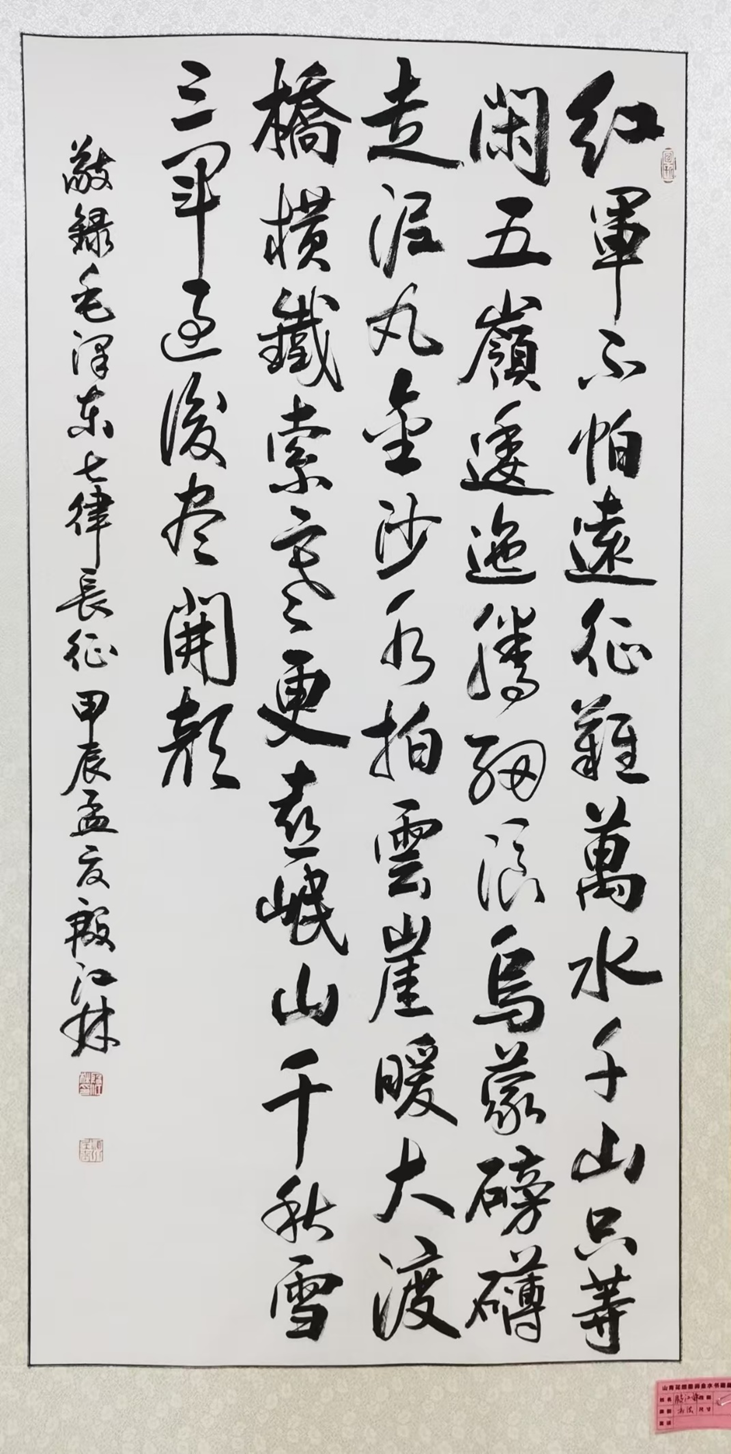 红軍不怕遠征難萬水千山只等
閑五嶺逶迤騰細浪烏蒙磅礴
走泥丸金沙水拍雲崖暖大渡
橋横鐵索寒更喜岷山千秋雪
三軍過後尽開颜
敬錄毛泽东七律長征 甲辰孟夏殷江林